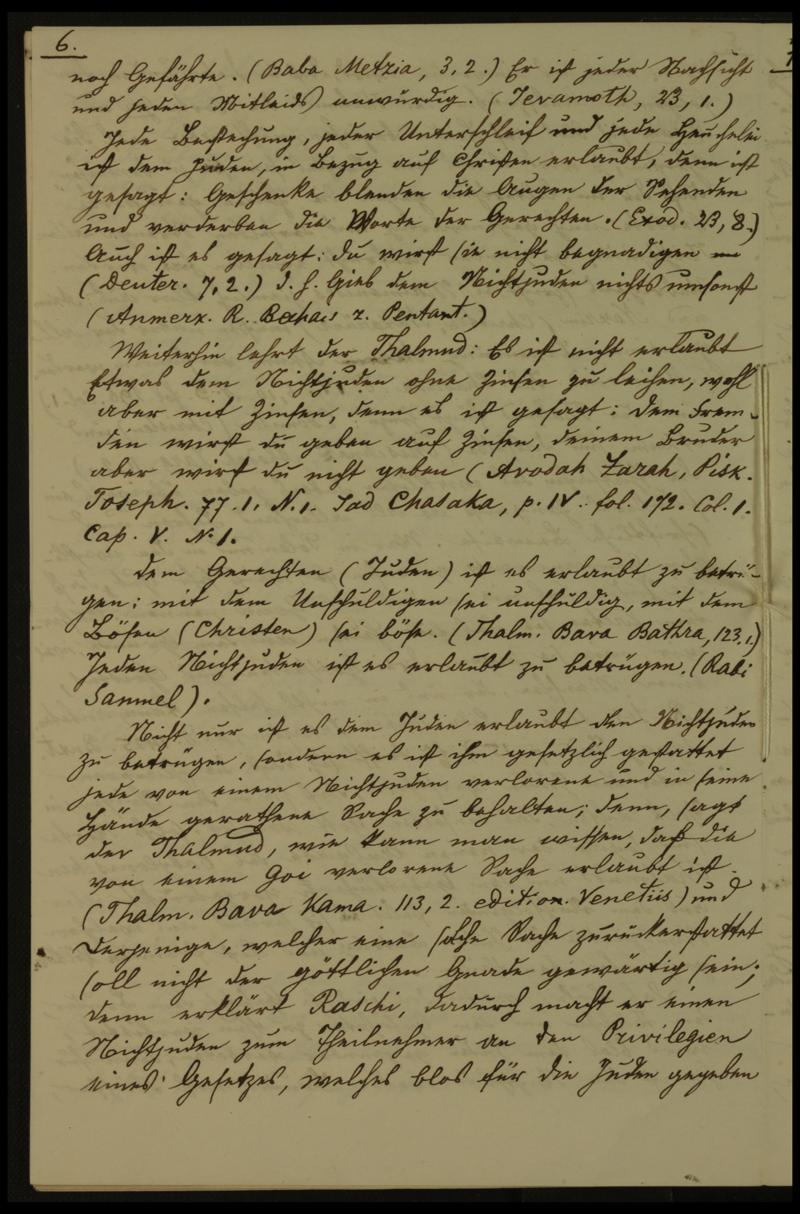 6.
noch Gefährte. (Baba Metzia, 3,2.) Er ist jeder Nachsicht
und jeden Mitleids unwürdig. (Jevamoth, 23, 1.)
Jede Bestechung, jeder Unterschleif und jede Heuchelei
ist dem Juden, in Bezug auf Christen erlaubt, denn ist
gesagt: Geschenke blenden die Augen der Sehenden
und verderben die Worte der Gerechten. (Exod. 23, 8.)
Auch ist es gesagt: du wirst sie nicht begnadigen
(Deuter. 7, 2.) d. h. Gieb dem Nichtjuden nichts umsonst
(Anmerk. R. Bahais z. Pentant.)
Weiterhin lehrt der Thalmud: Es ist nicht erlaubt
Etwas dem Nichtjuden ohne Zinsen zu leihen, wohl
aber mit Zinsen, denn es ist gesagt: dem Frem-
den wirst du geben auf Zinsen, deinem Bruder
aber wirst du nicht geben (Avodah Zarah, Pisk.
Toseph. 77. 1. N. 1. Jad Chasaka, p. IV. fol. 172. Col. 1.
Cap. V. N. 1.
Dem Gerechten (Juden) ist es erlaubt zu betrü-
gen: mit dem Unschuldigen sei unschuldig, mit dem
Bösen (Christen) sei böse. (Thalm. Bava Bathra, 123. 1.)
Jeden Nichtjuden ist es erlaubt zu betrügen. (Rabi
Sammel).
Nicht nur ist es dem Juden erlaubt den Nichtjuden
zu betrügen, sondern es ist ihm gesetzlich gestattet
jede von einem Nichtjuden verlorene und in seine
Hände gerathene Sache zu behalten; denn, sagt
der Thalmud, wie kann man wissen, daß die
von einem Goi verlorene Sache erlaubt ist.
(Thalm. Bava Kama. 113, 2. edition. Venetiis) und
Derjenige, welcher eine solche Sache zurückerstattet
soll nicht der göttlichen Gnade gewärtig sein;
denn erklärt Raschi, dadurch macht er einen
Nichtjuden zum Theilnehmer an den Privilegien
eines Gesetzes, welches blos für die Juden gegeben